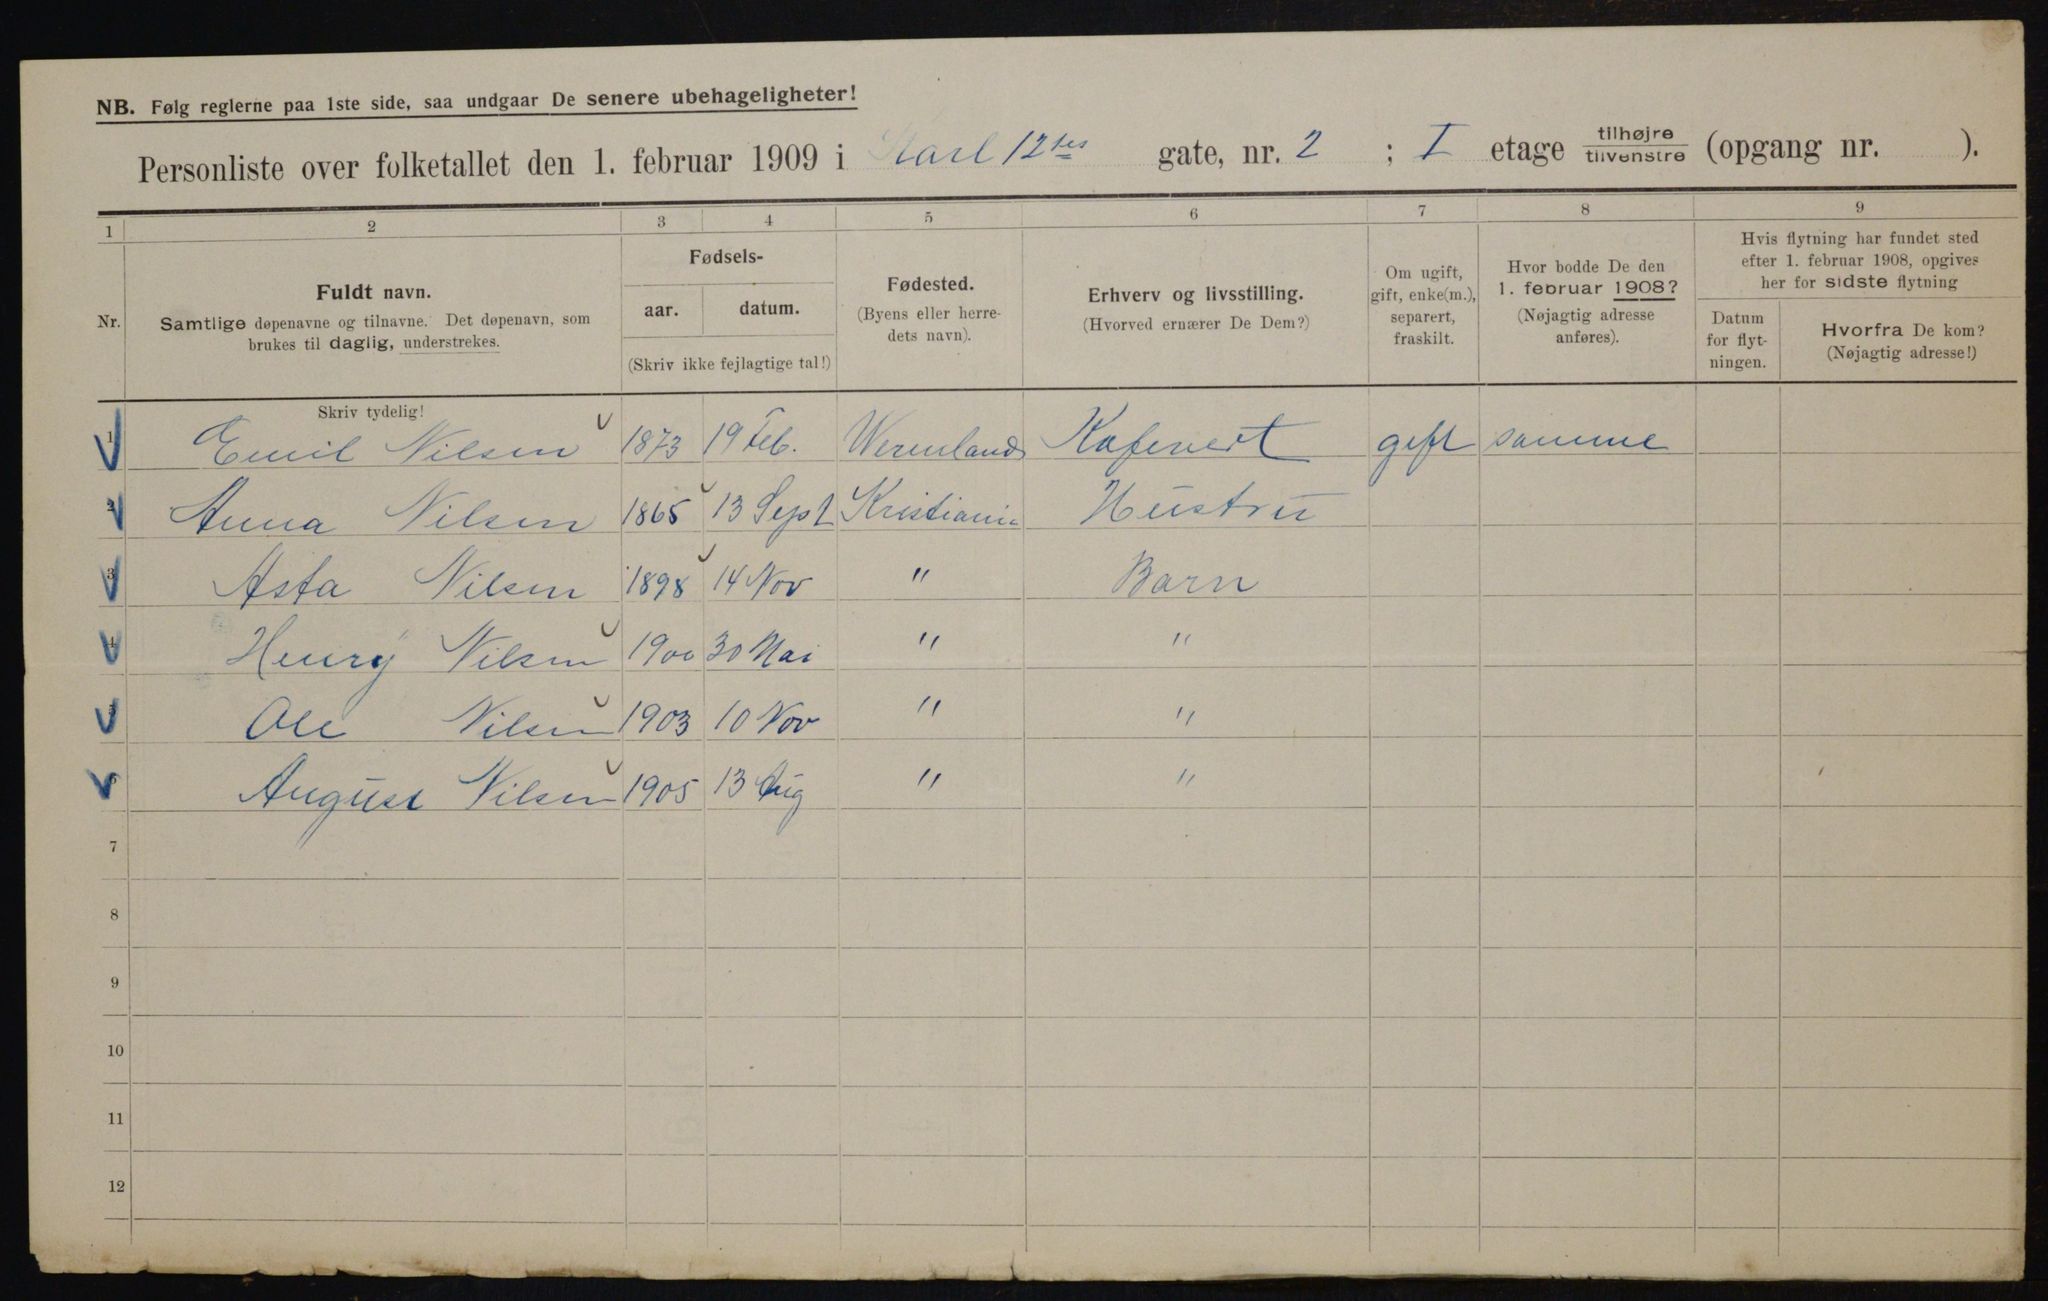 NB. Følg reglerne paa 1ste side, saa undgaar De senere ubehageligheter!
Personliste over folketallet den 1. februar 1909 i Karl 12tes gate, nr. 2 ; I etage tilhøjre/tilvenstre (opgang nr. ).
1 2 3 4 5 6 7 8 9
Nr.
Fuldt navn.
Samtlige døpenavne og tilnavne. Det døpenavn, som
brukes til daglig, understrekes.
Fødsels-
aar. datum.
(Skriv ikke fejlagtige tal!)
Fødested.
(Byens eller herre-
dets navn).
Erhverv og livsstilling.
(Hvorved ernærer De Dem?)
Om ugift,
gift, enke(m.),
separert,
fraskilt.
Hvor bodde De den
1. februar 1908?
(Nøjagtig adresse
anføres).
Hvis flytning har fundet sted
efter 1. februar 1908, opgives
her for sidste flytning
Datum
for flyt-
ningen.
Hvorfra De kom?
(Nøjagtig adresse!)
Skriv tydelig!
1 Emil Nilsen 1873 19 Feb. Wermland Kafevert gift samme
2 Anna Nilsen 1865 13 Sept Kristiania Hustru
3 Asta Nilsen 1898 14 Nov " Barn
4 Henry Nilsen 1900 30 Mai " "
5 Ole Nilsen 1903 10 Nov " "
6 August Nilsen 1905 13 Aug " "
7
8
9
10
11
12